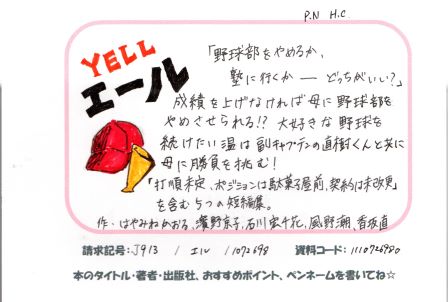 P.N H.C
YELL
エール
「野球部をやめるか、
塾に行くか ― どっちがいい?」
成績を上げなければ母に野球部を
やめさせられる!? 大好きな野球を
続けたい温は副キャプテンの直樹くんと共に
母に勝負を挑む!
「打順未定、ポジションは駄菓子屋前、契約は未改更」
を含む5つの短編集。
作・はやみねかおる、濱野京子、石川宏千花、風野潮、香坂直
請求記号: J913 / エル / 1072698 資料コード: 1110726980
本のタイトル・著者・出版社、おすすめポイント、ペンネームを書いてね☆